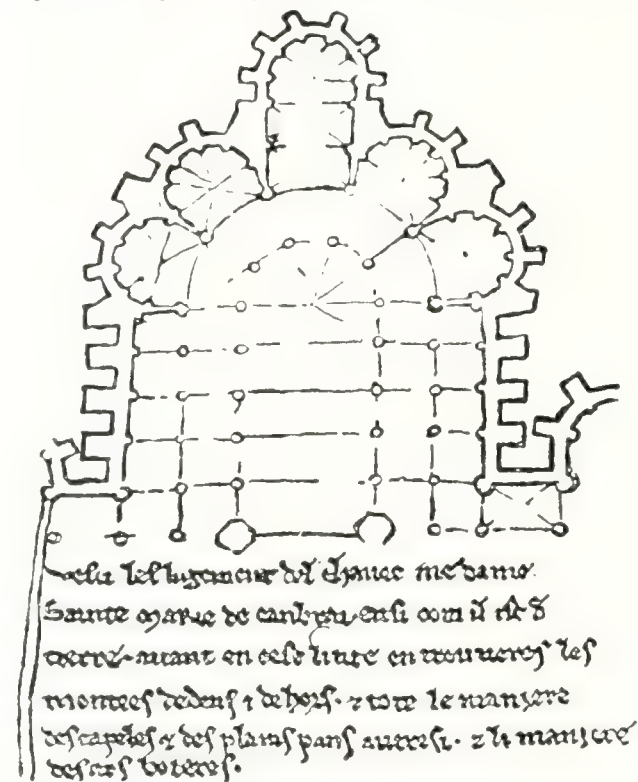 Vesci lesligement del chavec me dame
Sainte marie de canbrai ensi com il ist d
tierre. avant en cest livre en trouveres les
montees dedens ⁊ dehors. ⁊ tote le maniere
des capeles ⁊ des plains pans autresi. ⁊ li maniere
des ars boteres.